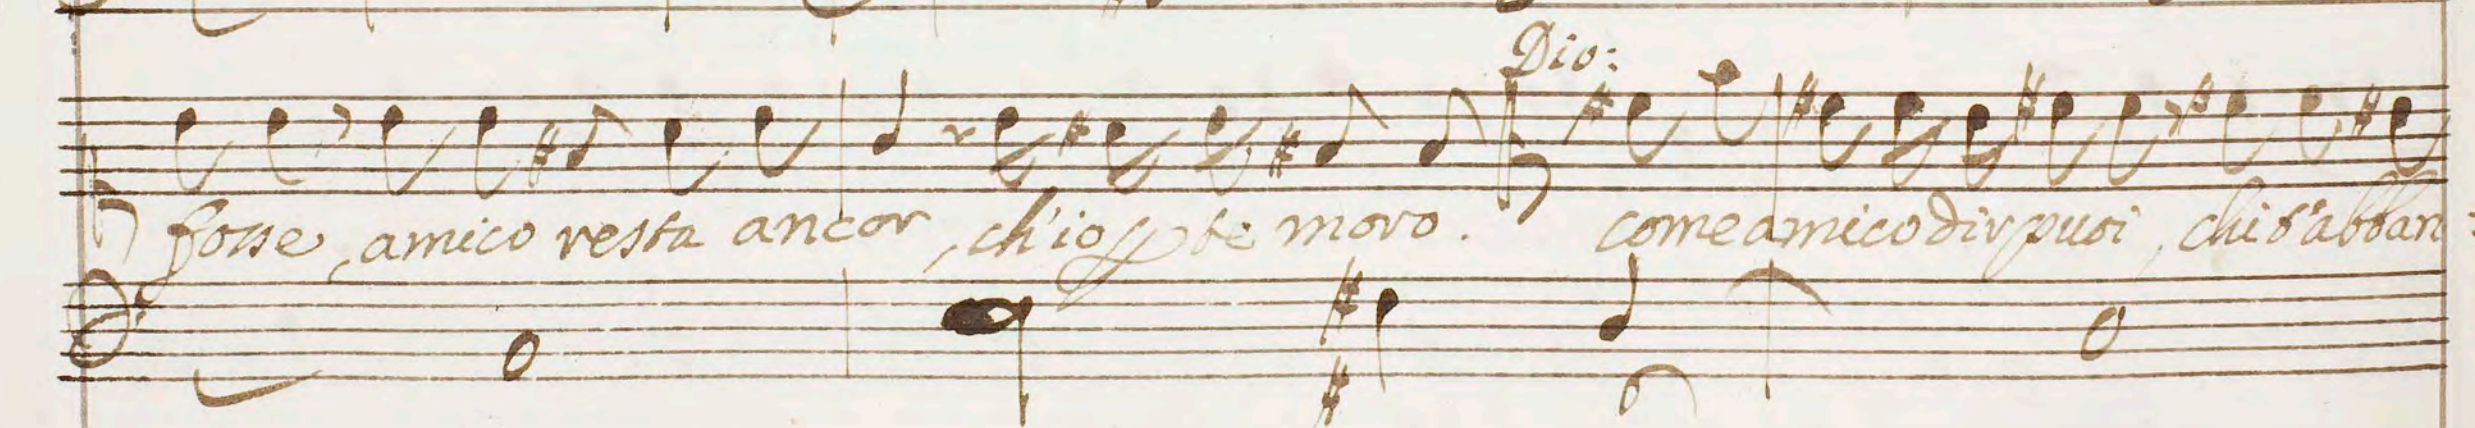 Dio:
forse, amico resta ancor, ch'io p te moro. come amico dir puoi, chi t'abban=
6